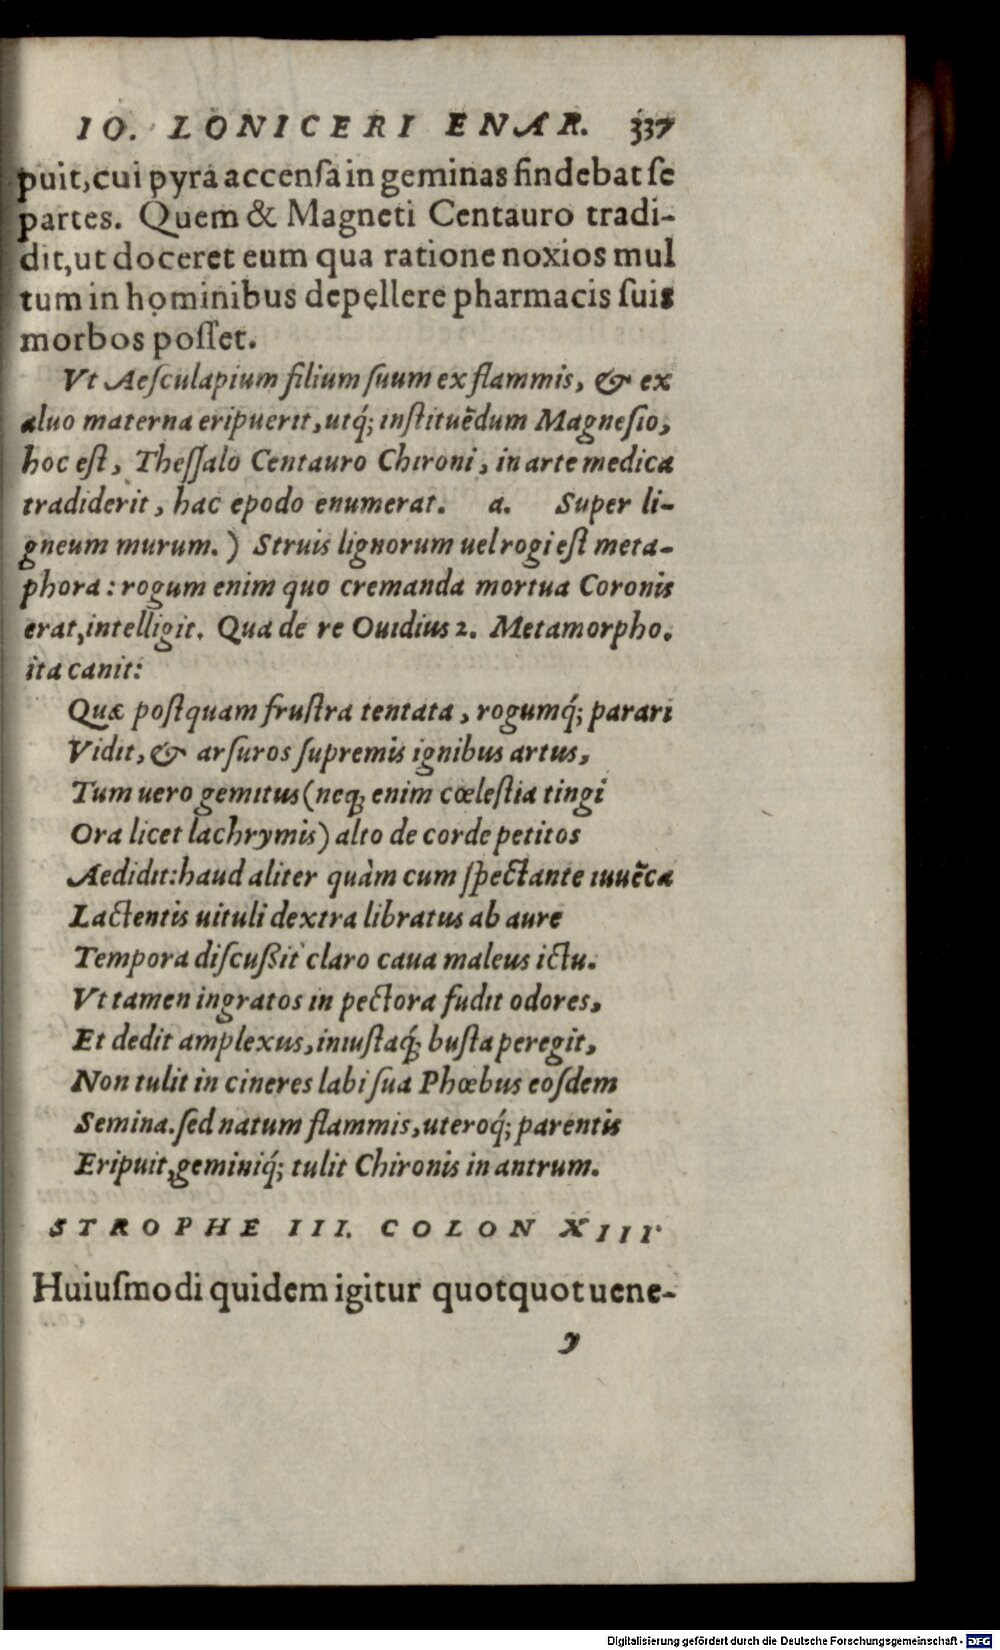 IO. LONICERI ENAR. 337
puit, cui pyra accensa in geminas findebat se
partes. Quem & Magneti Centauro tradi-
dit, ut doceret eum qua ratione noxios mul
tum in hominibus depellere pharmacis suis
morbos posset.
Vt Aesculapium filium suum ex flammis, & ex
aluo materna eripuerit, utq́; instituẽdum Magnesio,
hoc est, Thessalo Centauro Chironi, in arte medica
tradiderit, hac epodo enumerat. a. Super li-
gneum murum.) Struis lignorum uel rogi est meta-
phora: rogum enim quo cremanda mortua Coronis
erat, intelligit. Qua de re Ouidius 2. Metamorpho.
ita canit:
Quæ postquam frustra tentata, rogumq́; parari
Vidit, & arsuros supremis ignibus artus,
Tum uero gemitus (neq; enim cœlestia tingi
Ora licet lachrymis) alto de corde petitos
Aedidit: haud aliter quàm cum spectante iuuẽca
Lactentis uituli dextra libratus ab aure
Tempora discußit claro caua maleus ictu.
Vt tamen ingratos in pectora fudit odores,
Et dedit amplexus, iniustaq́; busta peregit,
Non tulit in cineres labi sua Phœbus eosdem
Semina. sed natum flammis, uteroq́; parentis
Eripuit, geminiq́; tulit Chironis in antrum.
STROPHE III. COLON XIII
Huiusmodi quidem igitur quotquot uene-
y
Digitalisierung gefördert durch die Deutsche Forschungsgemeinschaft - DFG